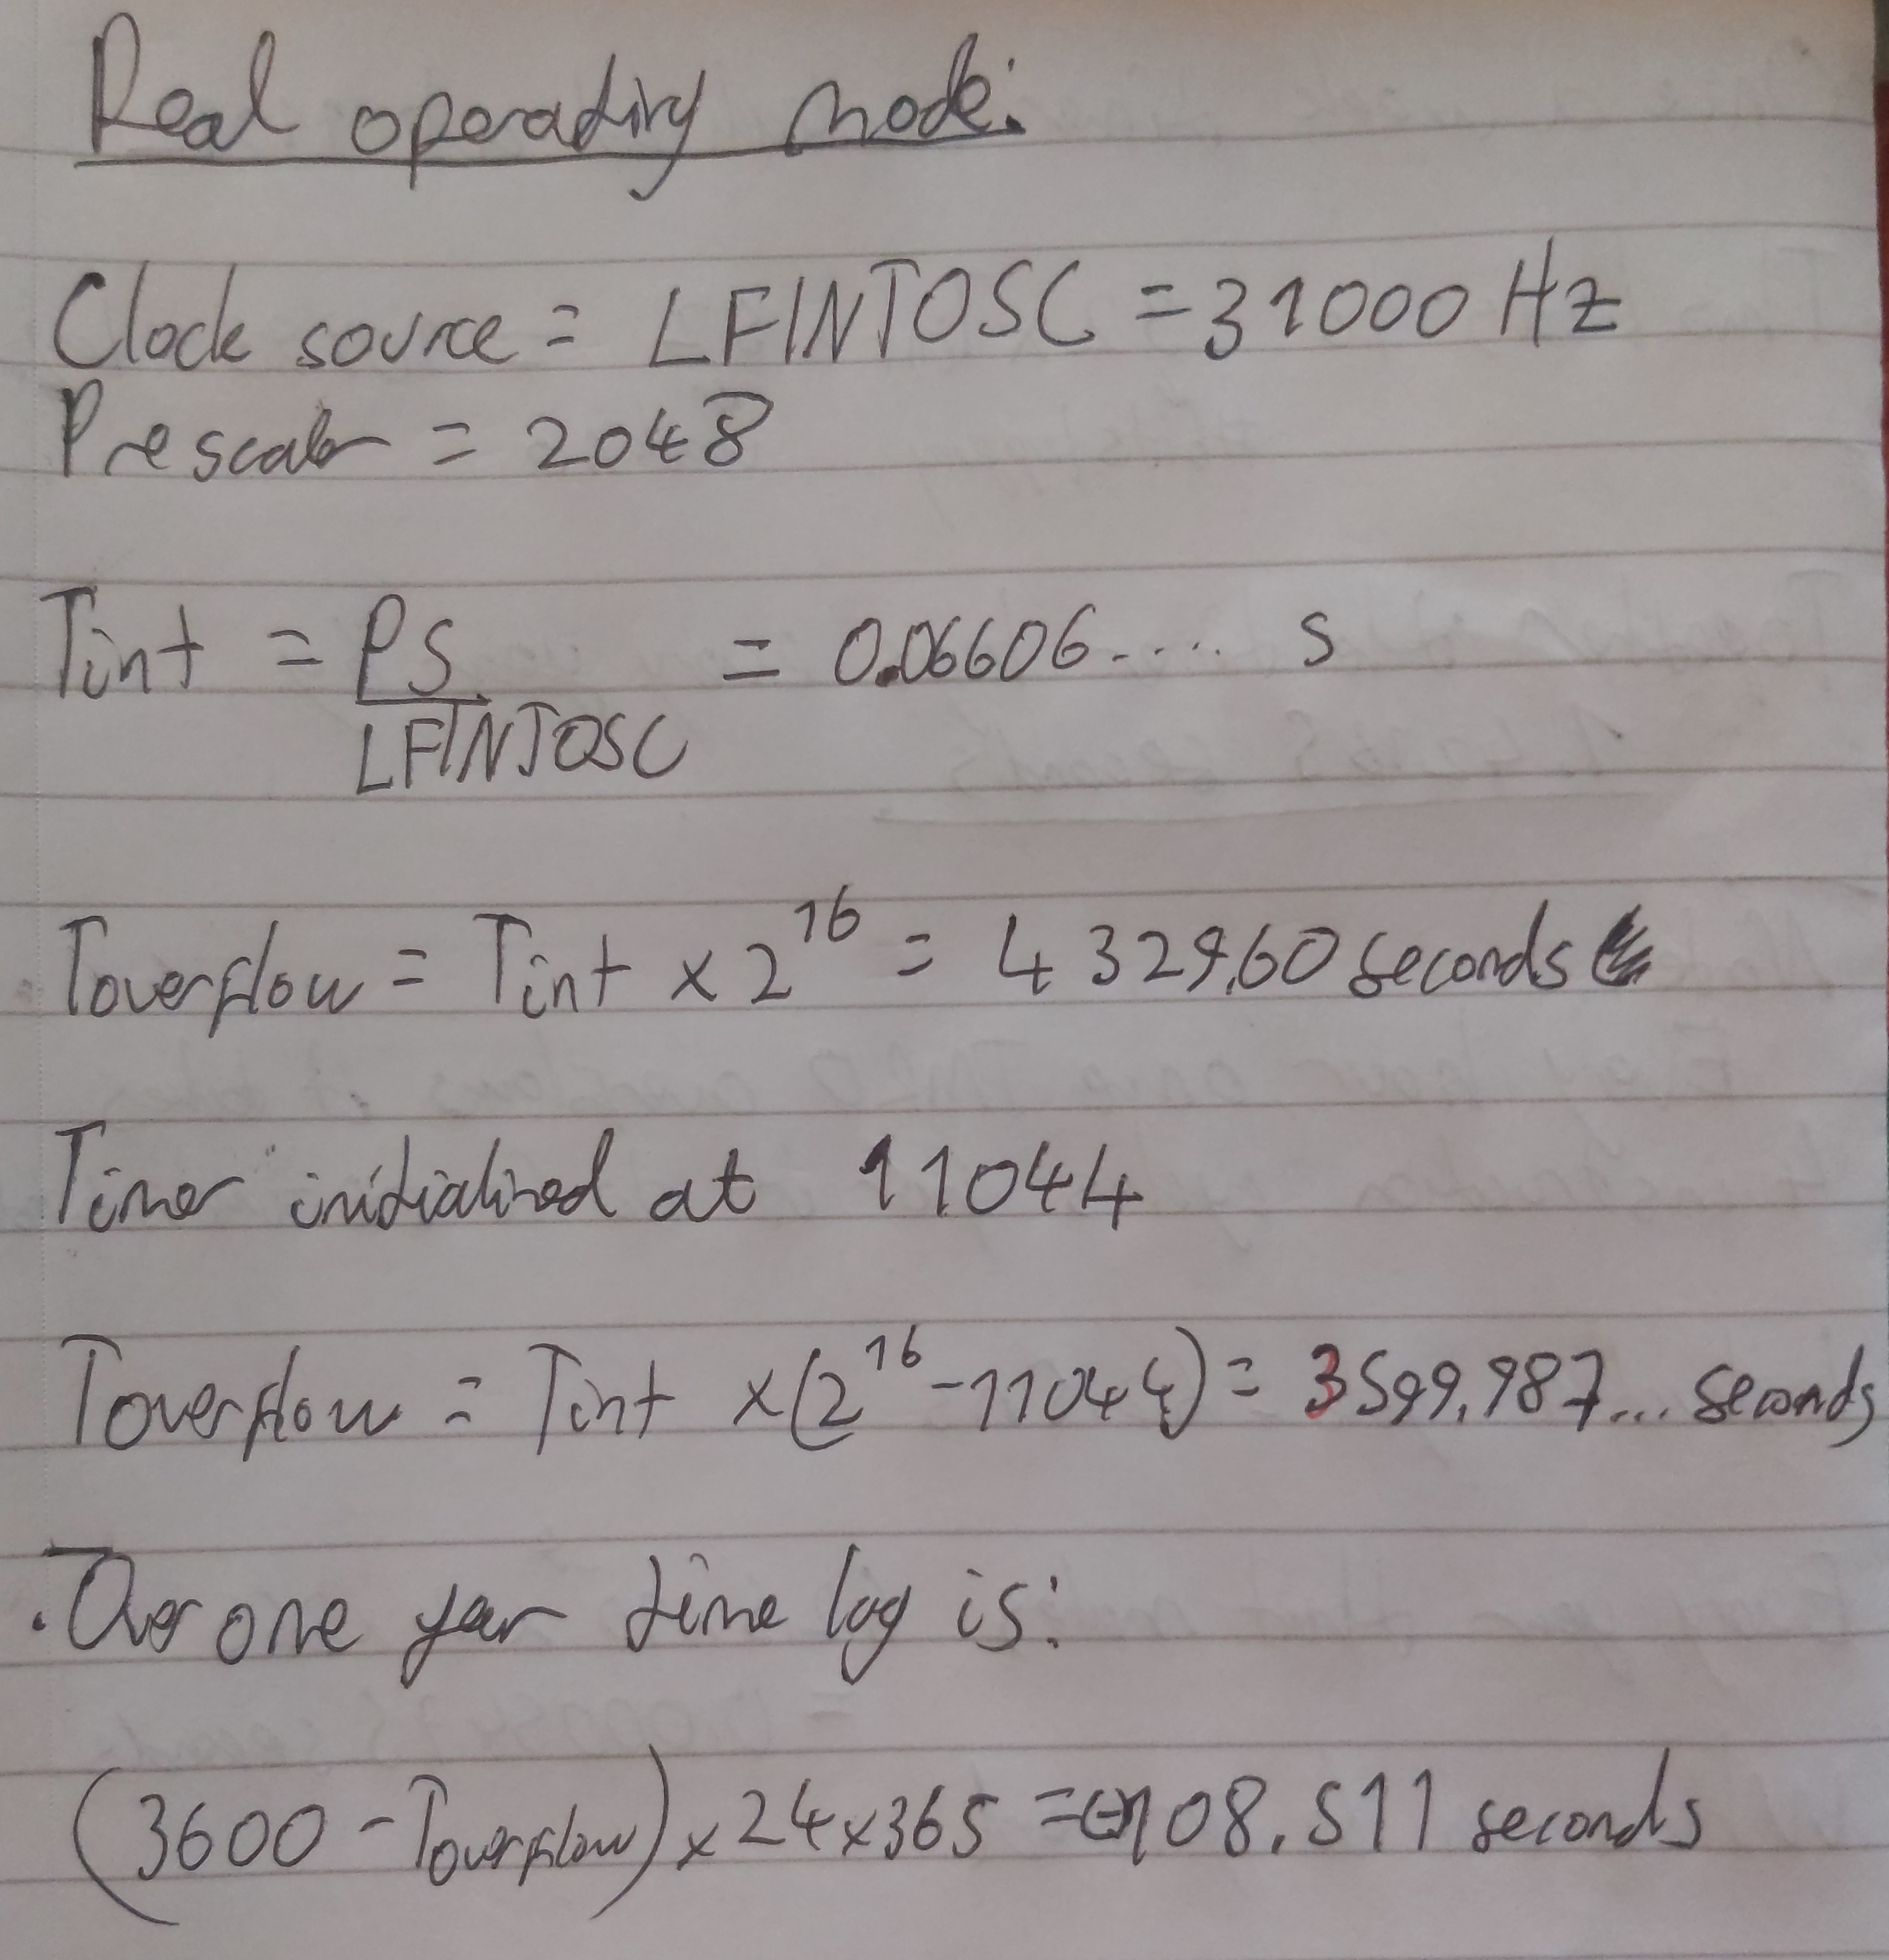 Real operating mode:
Clock source = LFINTOSC = 31000 Hz
Prescaler = 2048
Tint = PS / LFINTOSC = 0.06606.... s
Toverflow = Tint x 2^16 = 4329.60 seconds
Timer initialized at 11044
Toverflow = Tint x (2^16 - 11044) = 3599.987... seconds
Over one year time lag is:
(3600 - Toverflow) x 24 x 365 = 108.511 seconds